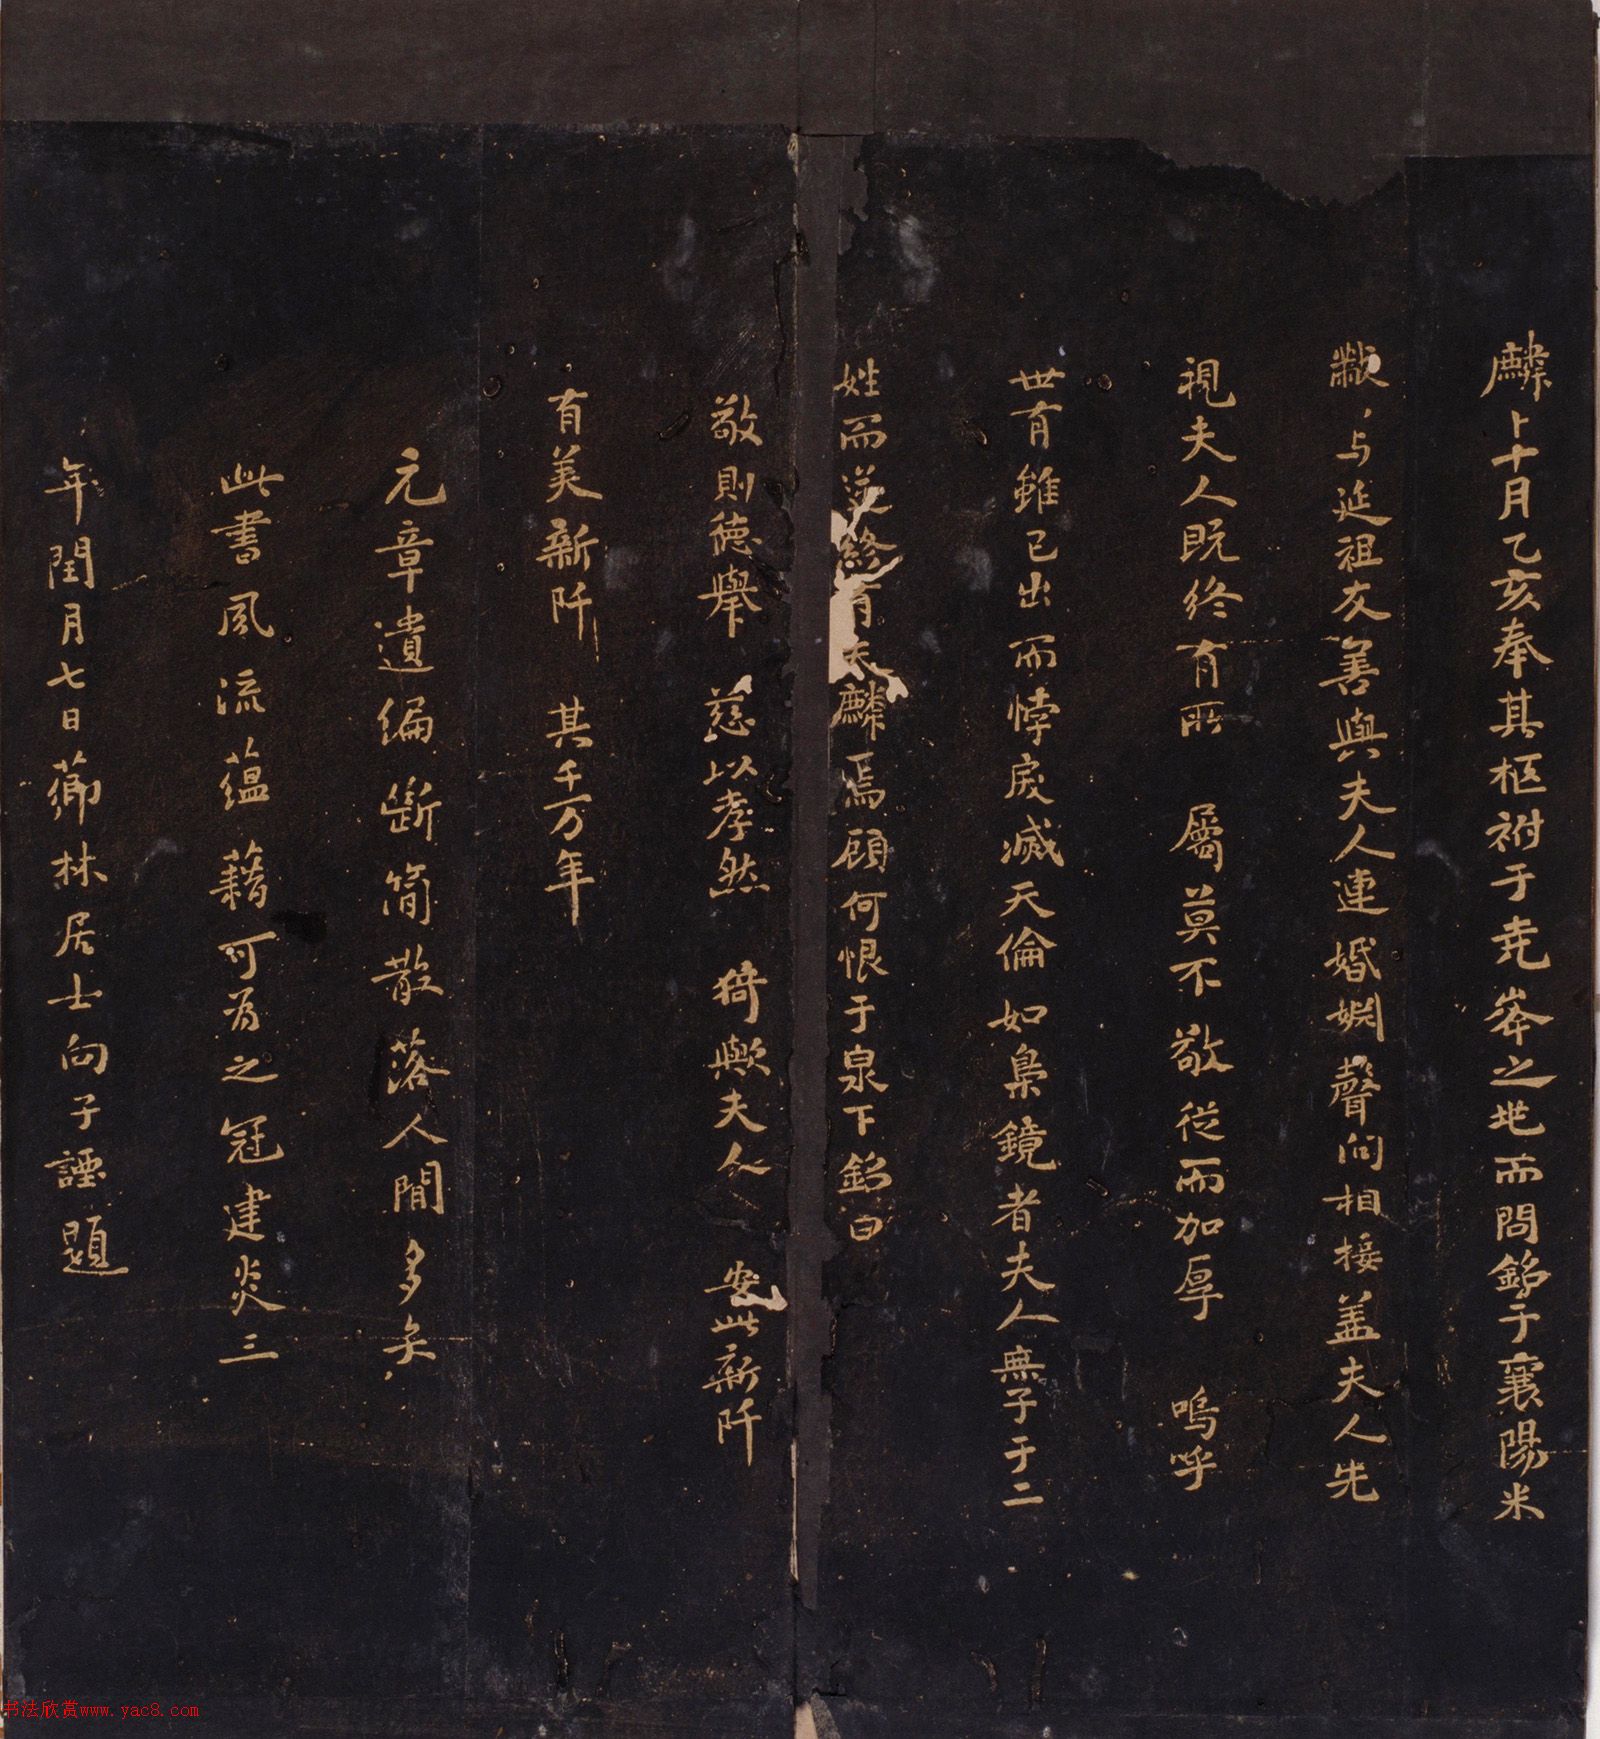 麟卜十月乙亥奉其柩祔于尭峯之地而問銘于襄陽米
黻与延祖友善與夫人連婚婣聲問相接盖夫人先
視夫人既终有所 屬莫不敬従而加厚 嗚呼
世有雖已出而悖戾滅天倫如梟鏡者夫人無子于二
姓而 終有夫麟焉顧何恨于泉下銘曰
敬則徳舉 慈以孝然 猗歟夫人 安此新阡
有美新阡 其千万年
元章遺编断简散落人間多矣
此書風流蕴藉可為之冠建炎三
年閏月七日薌林居士向子諲題
书法欣赏www.yac8.com